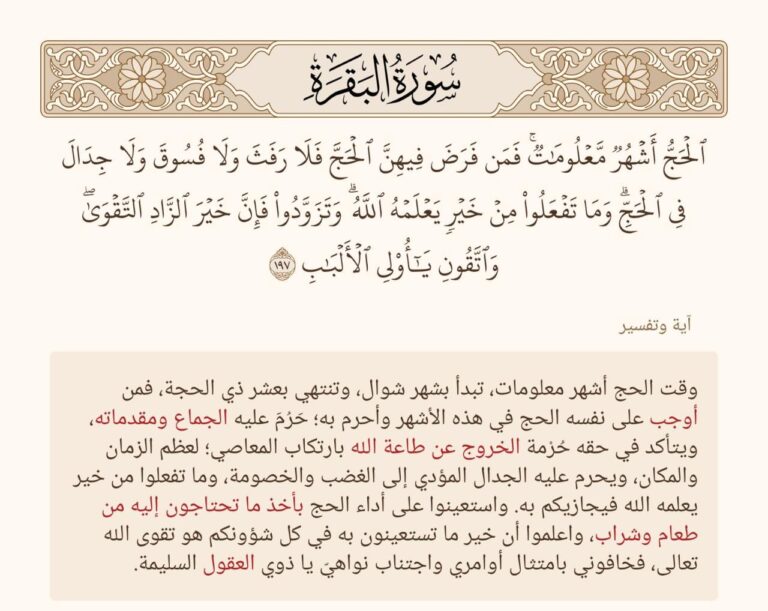 سُورَةُ البَقَرَةِ
ٱلۡحَجُّ أَشۡهُرٞ مَّعۡلُومَٰتٞۚ فَمَن فَرَضَ فِيهِنَّ ٱلۡحَجَّ فَلَا رَفَثَ وَلَا فُسُوقَ وَلَا جِدَالَ
فِي ٱلۡحَجِّۗ وَمَا تَفۡعَلُواْ مِنۡ خَيۡرٖ يَعۡلَمۡهُ ٱللَّهُۗ وَتَزَوَّدُواْ فَإِنَّ خَيۡرَ ٱلزَّادِ ٱلتَّقۡوَىٰۖ
وَٱتَّقُونِ يَٰٓأُوْلِي ٱلۡأَلۡبَٰبِ ١٩٧
آية وتفسير
وقت الحج أشهر معلومات، تبدأ بشهر شوال، وتنتهي بعشر ذي الحجة، فمن
أوجب على نفسه الحج في هذه الأشهر وأحرم به؛ حَرُمَ عليه الجماع ومقدماته،
ويتأكد في حقه حُرْمة الخروج عن طاعة الله بارتكاب المعاصي؛ لعظم الزمان
والمكان، ويحرم عليه الجدال المؤدي إلى الغضب والخصومة، وما تفعلوا من خير
يعلمه الله فيجازيكم به. واستعينوا على أداء الحج بأخذ ما تحتاجون إليه من
طعام وشراب، واعلموا أن خير ما تستعينون به في كل شؤونكم هو تقوى الله
تعالى، فخافوني بامتثال أوامري واجتناب نواهيَ يا ذوي العقول السليمة.